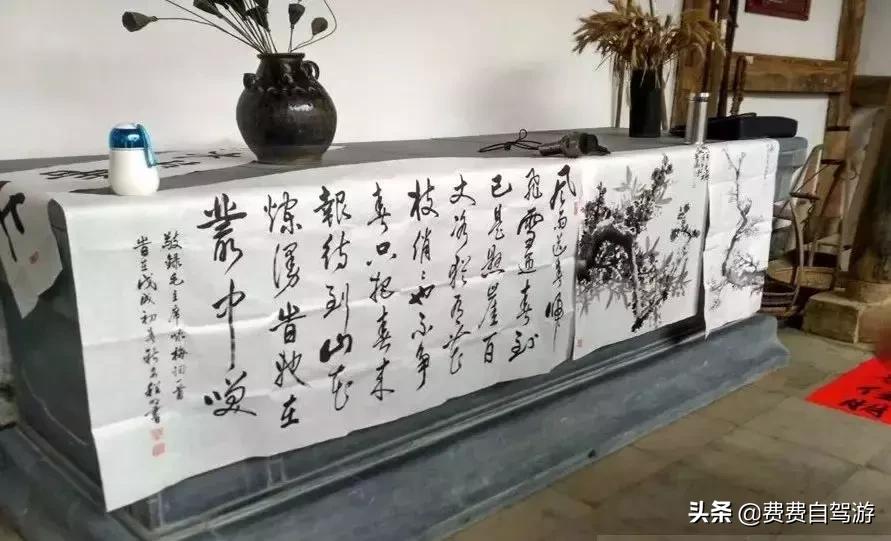 风雨送春归
飛雪迎春到
已是懸崖百
丈冰犹有花
枝俏俏也不争
春只把春来
報待到山花
烂漫旹她在
叢中咲
敬録毛主席咏梅词一首
旹在戊戌初春
头条 @费费自驾游